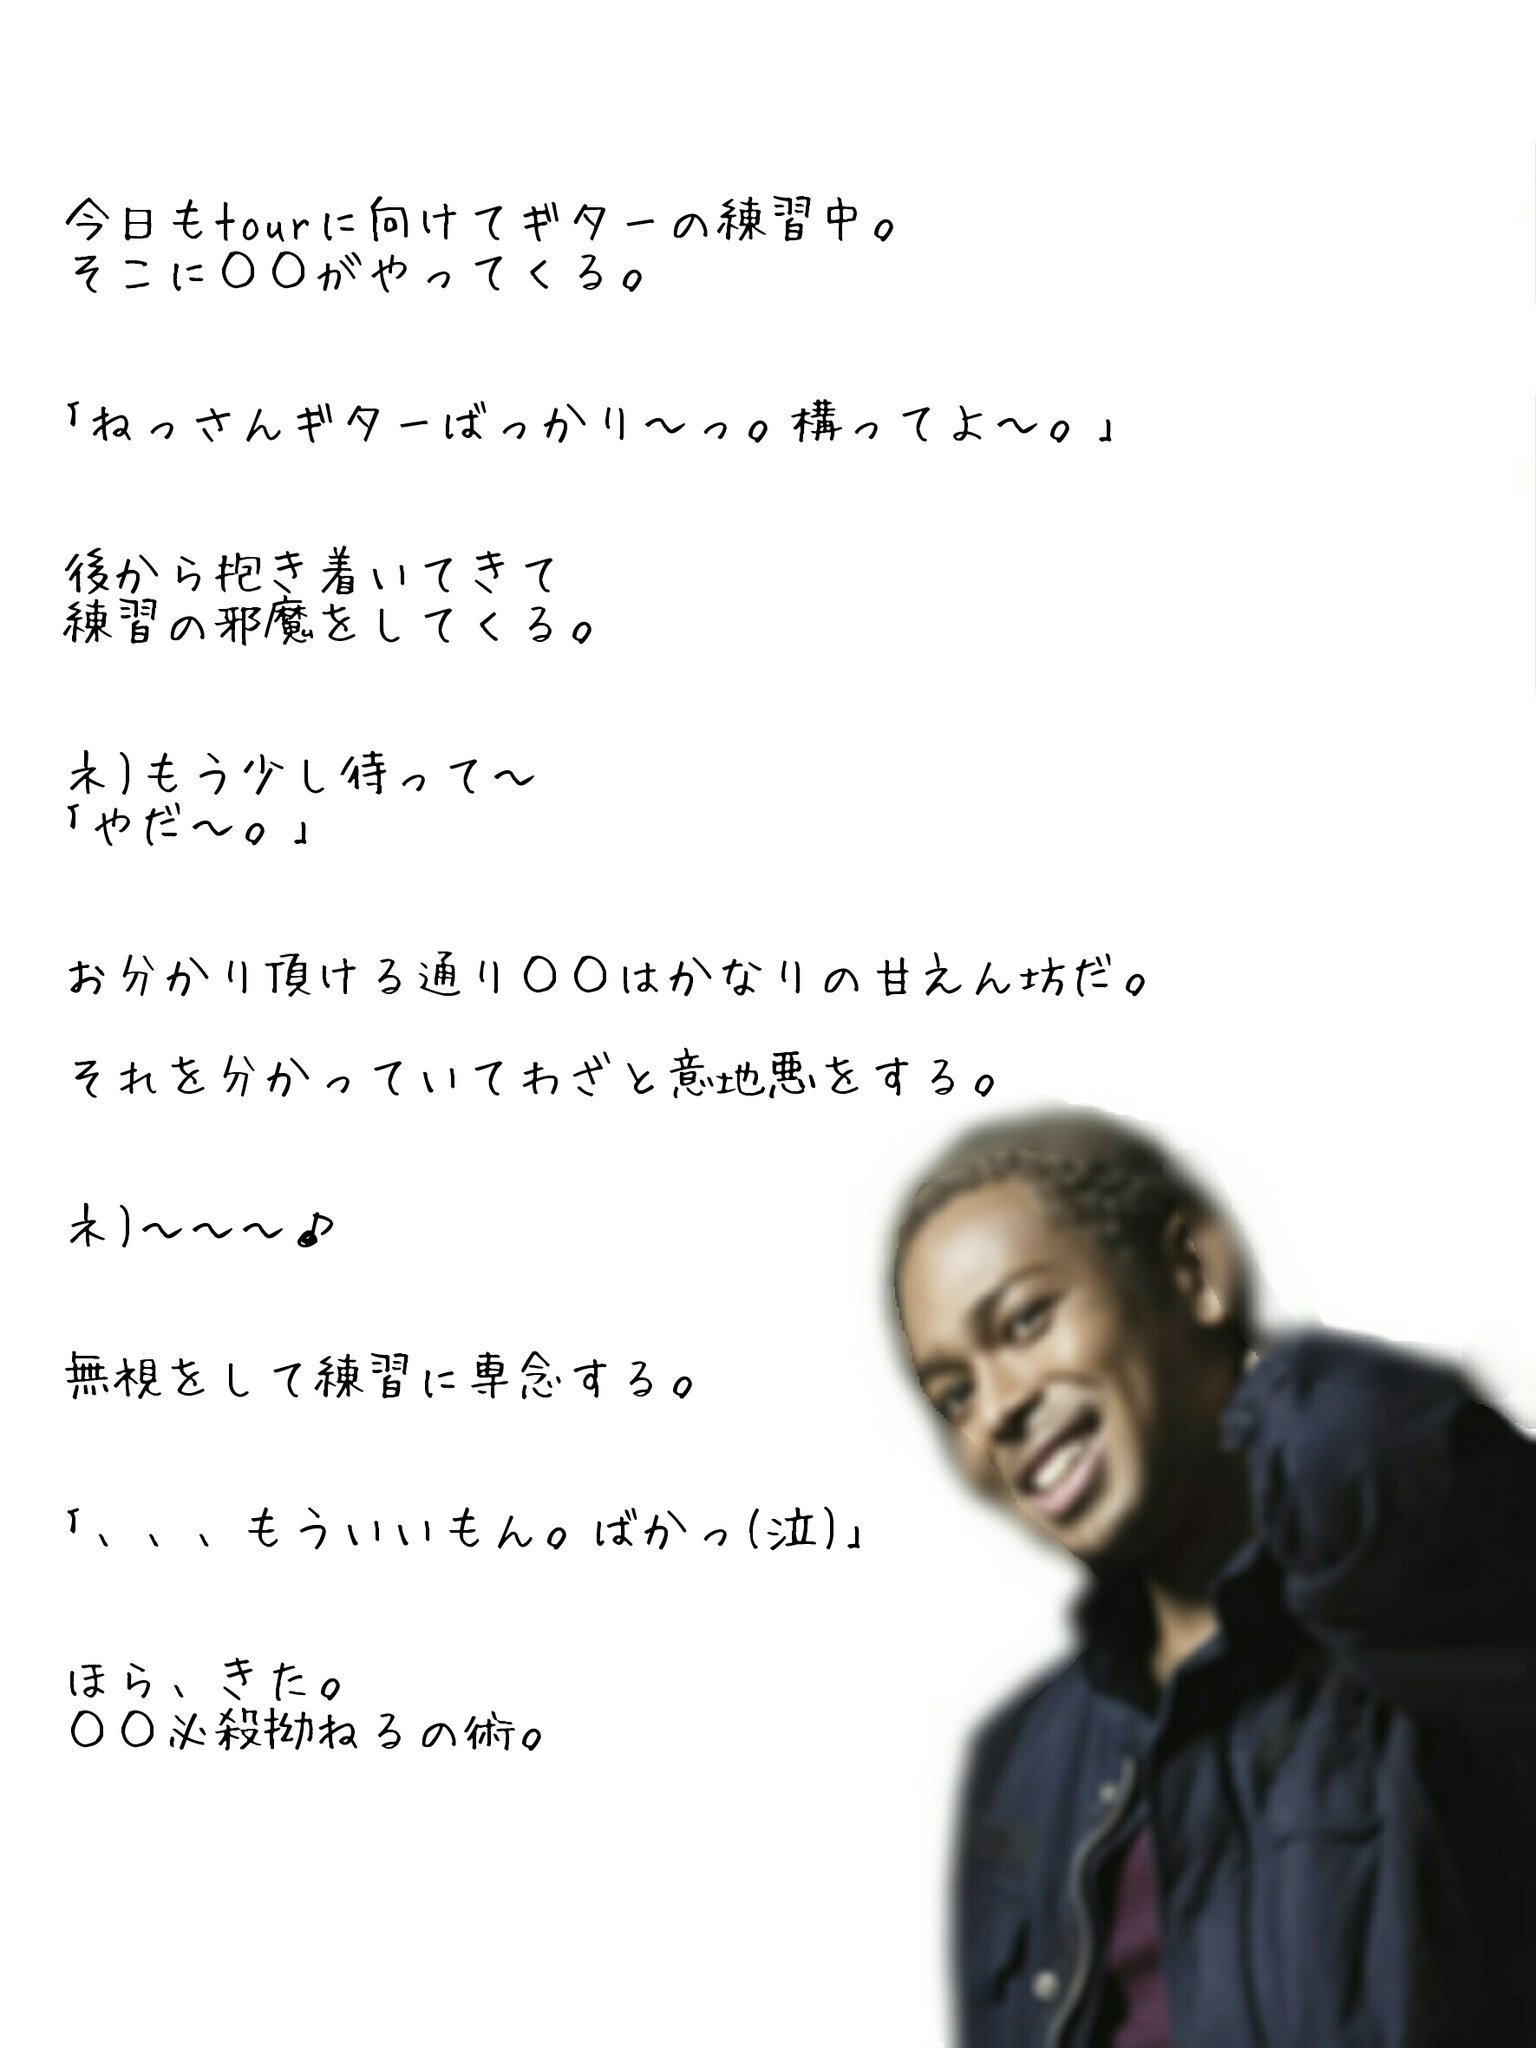 今日もtourに向けてギターの練習中。
そこに〇〇がやってくる。
「ねっさんギターばっかり～っ。構ってよ～。」
後から抱き着いてきて
練習の邪魔をしてくる。
ネ)もう少し待って～
「やだ～。」
お分かり頂ける通り〇〇はかなりの甘えん坊だ。
それを分かっていてわざと意地悪をする。
ネ)～～～♪
無視をして練習に専念する。
「、、、もういいもん。ばかっ(泣)」
ほら、きた。
〇〇必殺拗ねるの術。